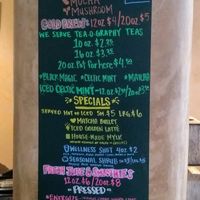 MOCHA
MUSHROOM
COLD BREWS 12oz $4/20oz $5
WE SERVE TEA-O-GRAPHY TEAS
10 oz. $2.75
16 oz. $3.75
20 oz. Pot For here $4.59
*BLACK MAGIC *CELTIC MINT *MATCHA
ICED CELTIC MINT
SPECIALS
SERVED HOT or ICED SM $5 LRG $6
MATCHA BULLET
ICED GOLDEN LATTE
HOUSE-MADE MYLK
WELLNESS SHOT 4oz $2
SEASONAL SHRUB
FRESH JUICE & SMOOTHIES
12oz $6/20oz $8
PRESSED
ENERGIZE